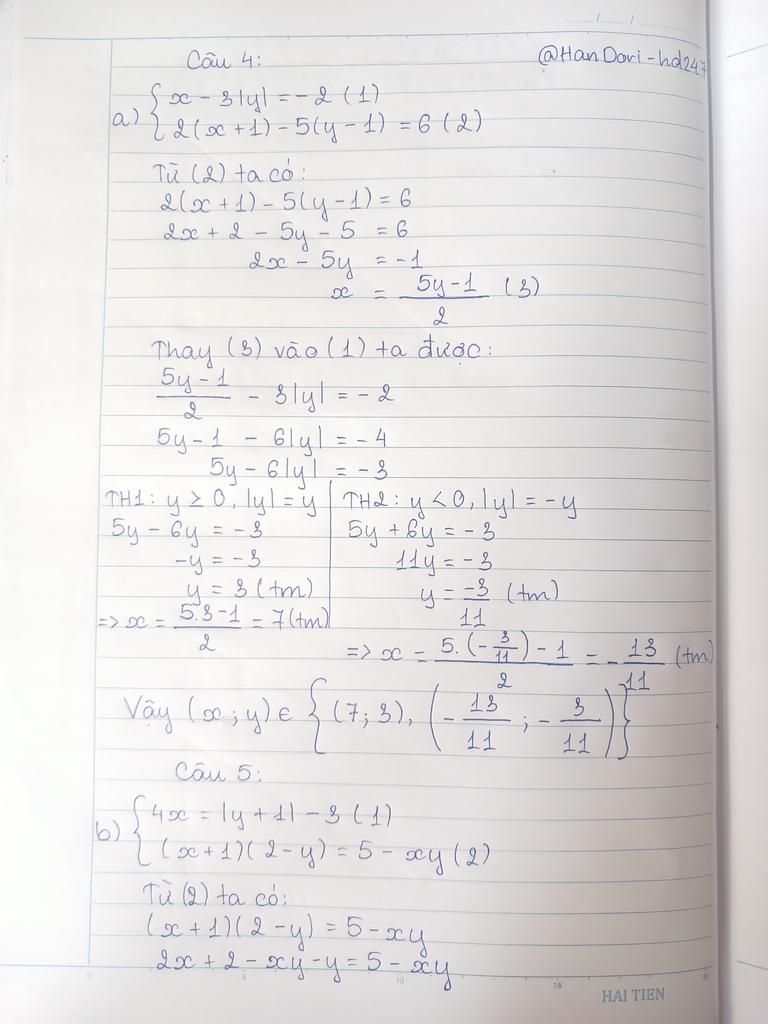 Câu 4:
@HanDori-hd247
a) { x - 3|y| = -2 (1)
2(x+1) - 5(y-1) = 6 (2)
Từ (2) ta có:
2(x+1) - 5(y-1) = 6
2x + 2 - 5y - 5 = 6
2x - 5y = -1
x = (5y-1)/2 (3)
Thay (3) vào (1) ta được:
(5y-1)/2 - 3|y| = -2
5y-1 - 6|y| = -4
5y - 6|y| = -3
TH1: y ≥ 0, |y| = y
5y - 6y = -3
-y = -3
y = 3 (tm)
=> x = (5.3-1)/2 = 7 (tm)
TH2: y < 0, |y| = -y
5y + 6y = -3
11y = -3
y = -3/11 (tm)
=> x = (5.(-3/11) - 1)/2 = -13/11 (tm)
Vậy (x; y) ∈ { (7; 3), (-13/11; -3/11) }
Câu 5:
b) { 4x = |y+1| - 3 (1)
(x+1)(2-y) = 5 - xy (2)
Từ (2) ta có:
(x+1)(2-y) = 5 - xy
2x + 2 - xy - y = 5 - xy
0 5 10 15 20
HAI TIEN